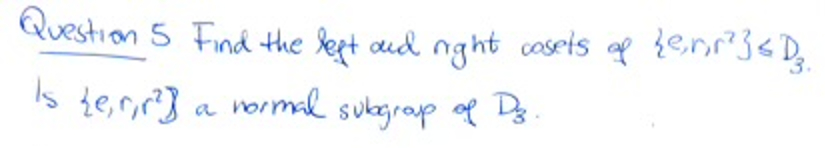 Question 5 Find the left and right cosets of {e,r,r²}≤D₃.
Is {e,r,r²} a normal subgroup of D₃.